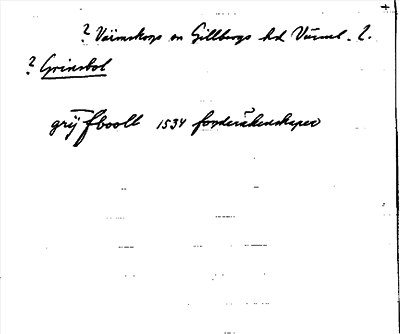 ? Värmskogs sn Gillbergs hd Värml. l.
? Grinsbol
grijsboolt 1534 fordräkenskaper